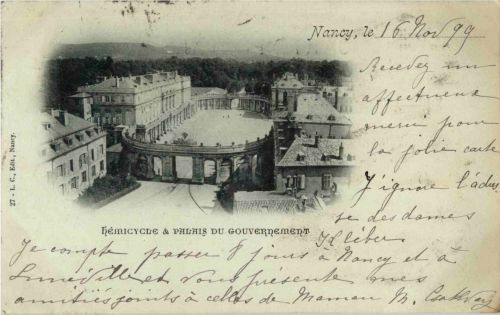 Nancy, le 16 Nov 99
Recevez un
affectueux
merci pour
la jolie carte
J'ignore l'adres
se des dames
Kléber
27 - L. C., Edit., Nancy.
HÉMICYCLE & PALAIS DU GOUVERNEMENT
Je compte passer 8 jours à Nancy et à
Lunéville et vous présente mes
amitiés joints à celles de Maman M.